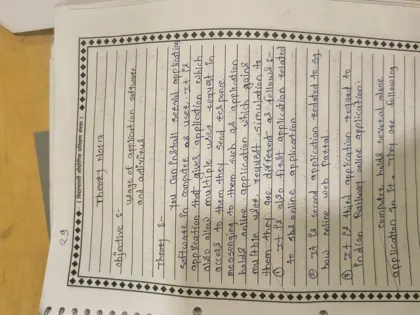 29
Theory No:13
objective :-
Usage of application software
and antivirus
Theory :-
You can install several application
software in computer as user. It is
application that gives application which
also allow multiple user request in
access to them they send response
messenging to them such as application
holds online application which gains
multiple user request simulation to
them they are different as follows :-
① It is also first application related
to sbi online application.
② It is second application related to
how online web Portal
③ It is third application request to
Indian Railway online application.
computer holds several more
application to it. They are following